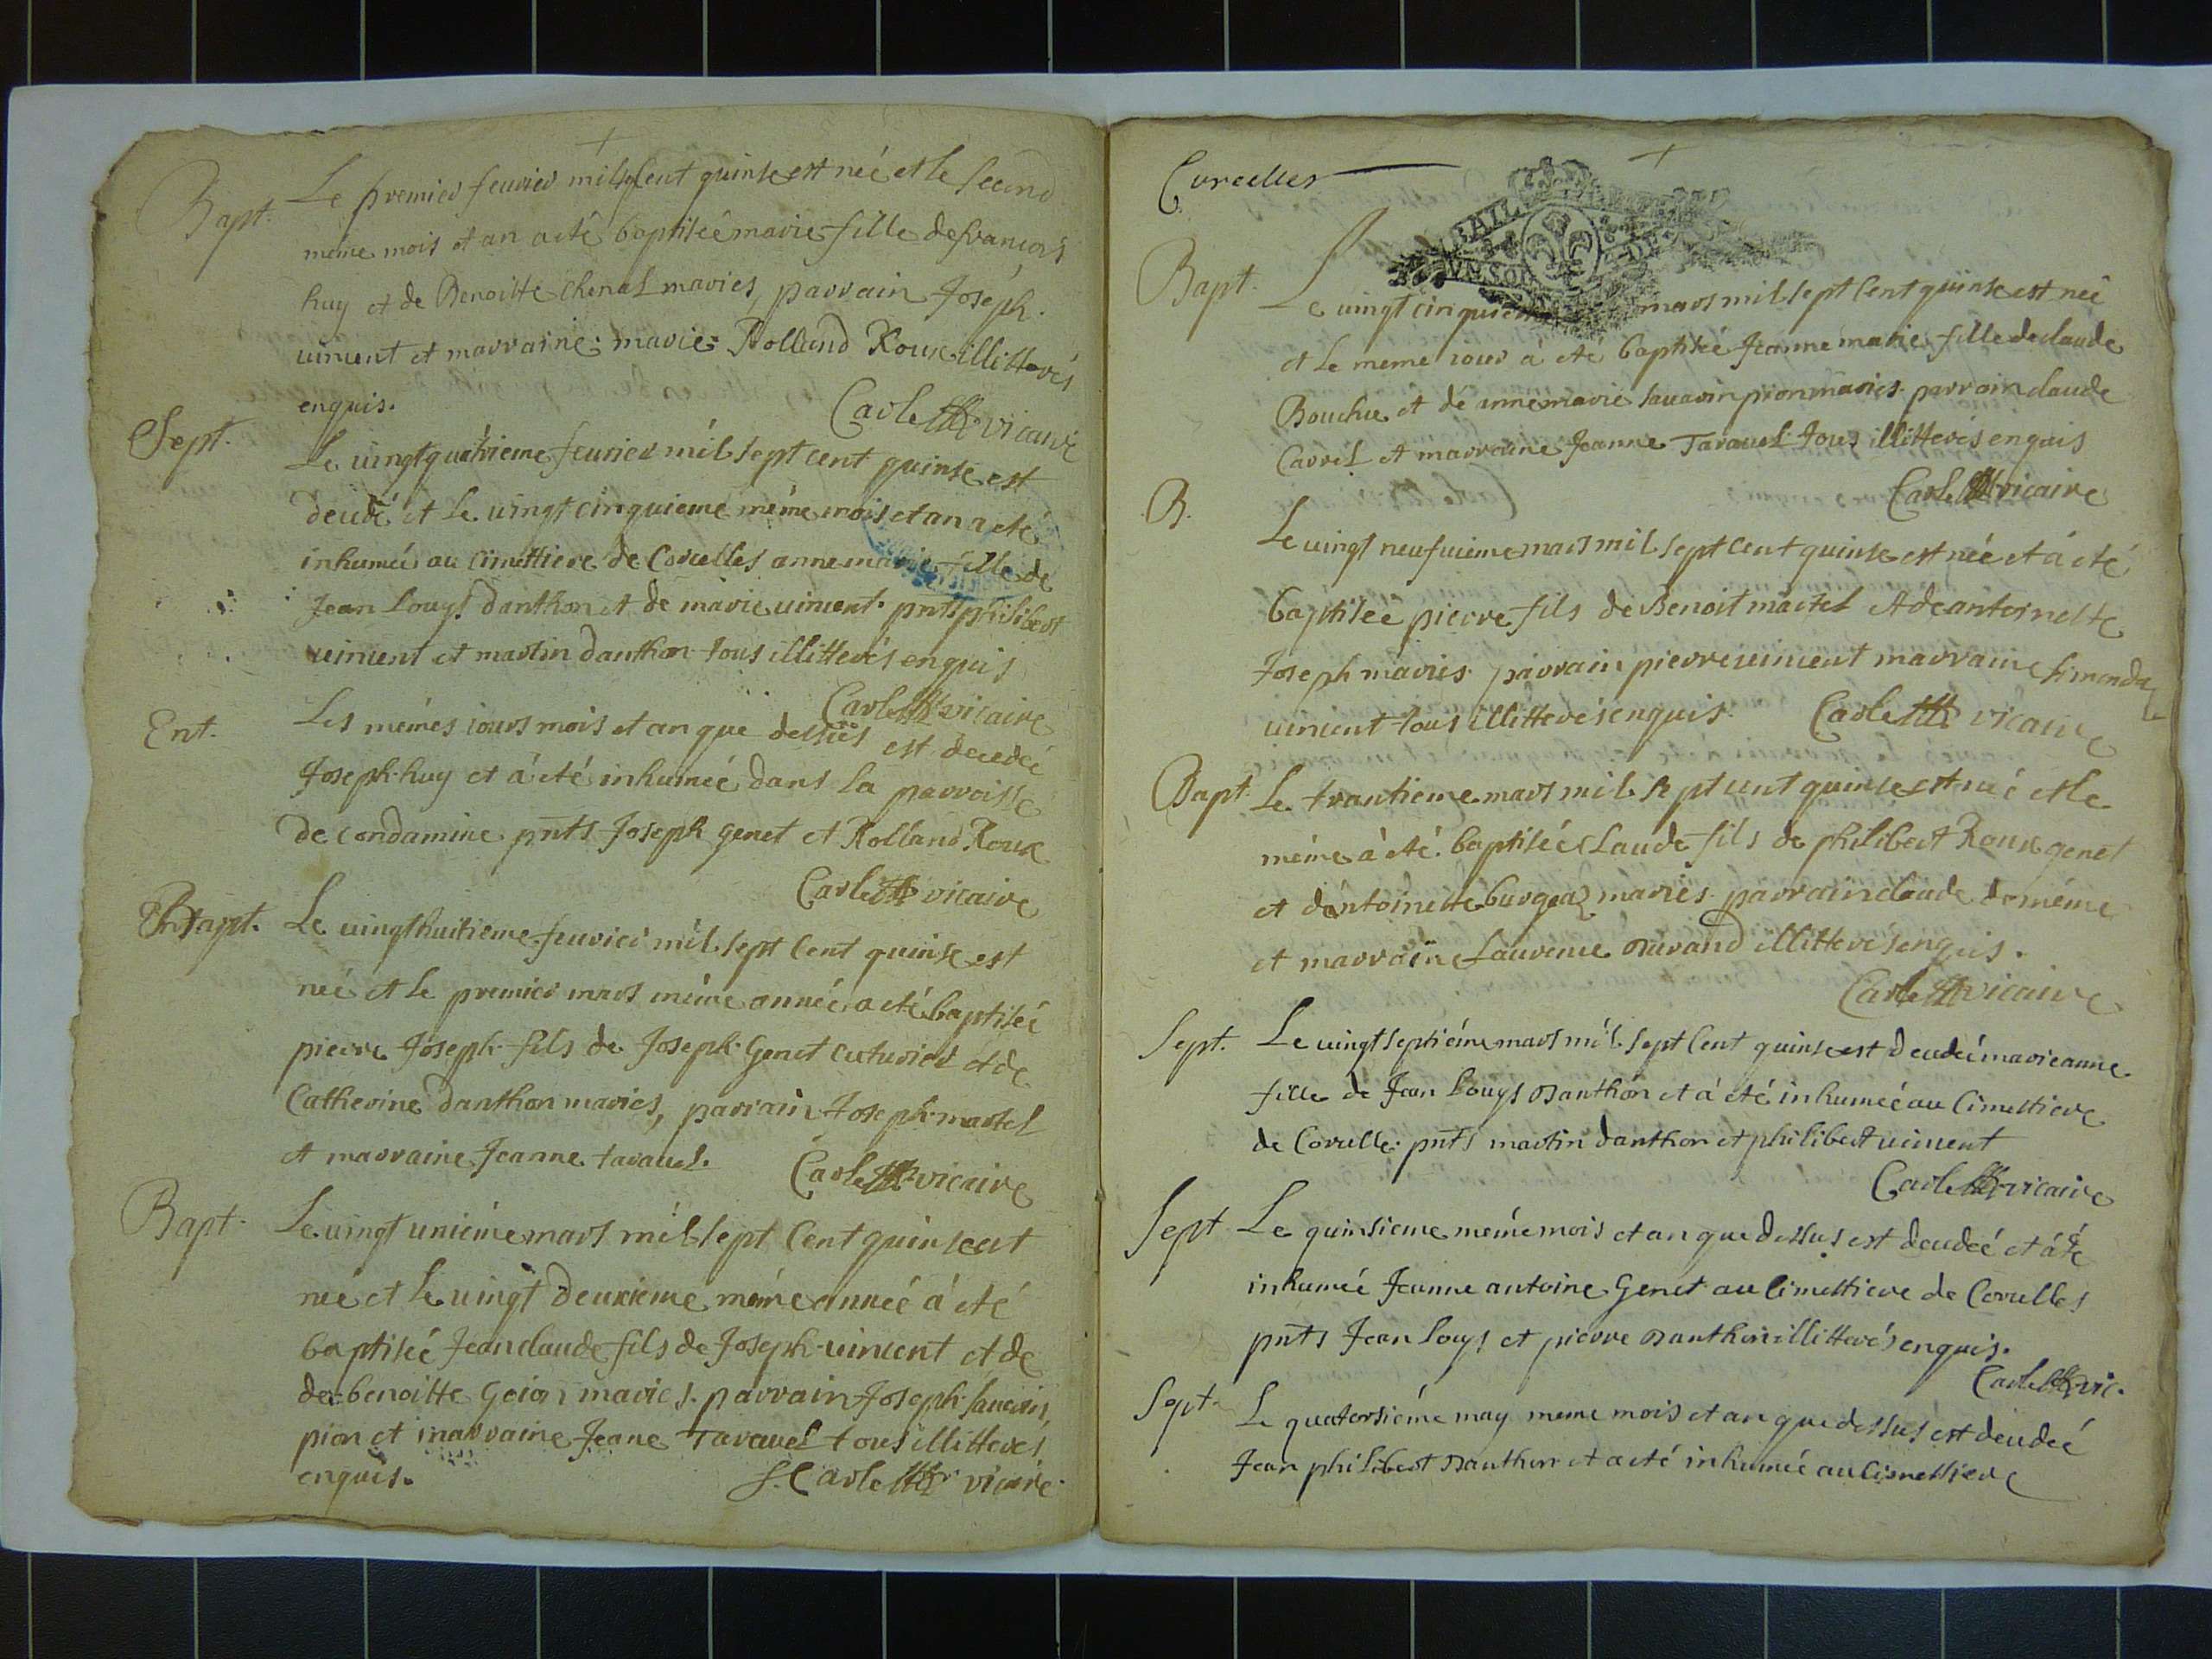 Bapt. Le premier feuvier mil sept cent quinse est neé et le second
même mois et an a eté baptiseé marie fille de françois
huy et de Benoitte chenal mariés, parrain Joseph
uincent et marraine marie Rolland Roux illitterés
enquis. Carle vicaire
Sept. Le uingt quatrieme feurier mil sept cent quinse est
decedé et le uingt cinquieme même mois et an a eté
inhumeé au cimettiere de Corcelles anne marie fille de
Jean Louys danthon et de marie uincent. pnts philibert
uincent et martin danthon tous illitterés enquis
Carle vicaire
Ent. Les mêmes iours mois et an que dessus est decedeé
Joseph huy et à eté inhumeé dans la parroisse
de condamine pnts Joseph genet et Rolland Roux
Carle vicaire
Bapt. Le uingt huitieme feuvier mil sept cent quinse est
neé et le premier mars même anneé a eté baptiseé
pierre Joseph fils de Joseph Genet cuturier et de
Catherine danthon mariés, parrain Joseph martel
et marraine Jeanne tarauel. Carle vicaire
Bapt. Le uingt unieme mars mil sept cent quinse est
neé et le uingt deuxieme même anneé à eté
baptiseé Jean claude fils de Joseph uincent et de
de benoitte Goion mariés. parrain Joseph sauarin
pion et marraine Jeane Tarauel tous illitterés
enquis. J. Carle vicaire
Curcelles
BAIL
UN SOL DE
Bapt. Le uingt cinquieme mars mil sept cent quinse est neé
et le meme iour à eté baptiseé Jeanne marie fille de claude
Bouchu et de anne marie sauarin pion mariés. parrain claude
Carrel et marraine Jeanne Tarauel tous illitterés enquis
Carle vicaire
B. Le uingt neufuieme mars mil sept cent quinse est neé et à eté
baptiseé pierre fils de Benoit martel et de antoinette
Joseph mariés. parrain pierre uincent marraine simonde
uincent tous illitterés enquis. Carle vicaire
Bapt. Le trantieme mars mil sept cent quinse est neé et le
même à eté baptiseé Claude fils de philibert Roux genet
et d'antoinette burgoz mariés. parrain claude de même
et marraine Laurence durand illitterés enquis.
Carle vicaire
Sept. Le uingt septiéme mars mil sept cent quinse est decedeé marie anne
fille de Jean Louys danthon et à eté inhumeé au cimettiere
de Corcelle. pnts martin danthon et philibert uincent
Carle vicaire
Sept Le quinsieme même mois et an que dessus est decedeé et à eté
inhumeé Jeanne antoine Genet au cimettiere de Corcelles
pnts Jean Louys et pierre danthon illitterés enquis.
Carle vic.
Sept. Le quatorsiéme may meme mois et an que dessus est decedeé
Jean philibert danthon et a eté inhumeé au cimettiere